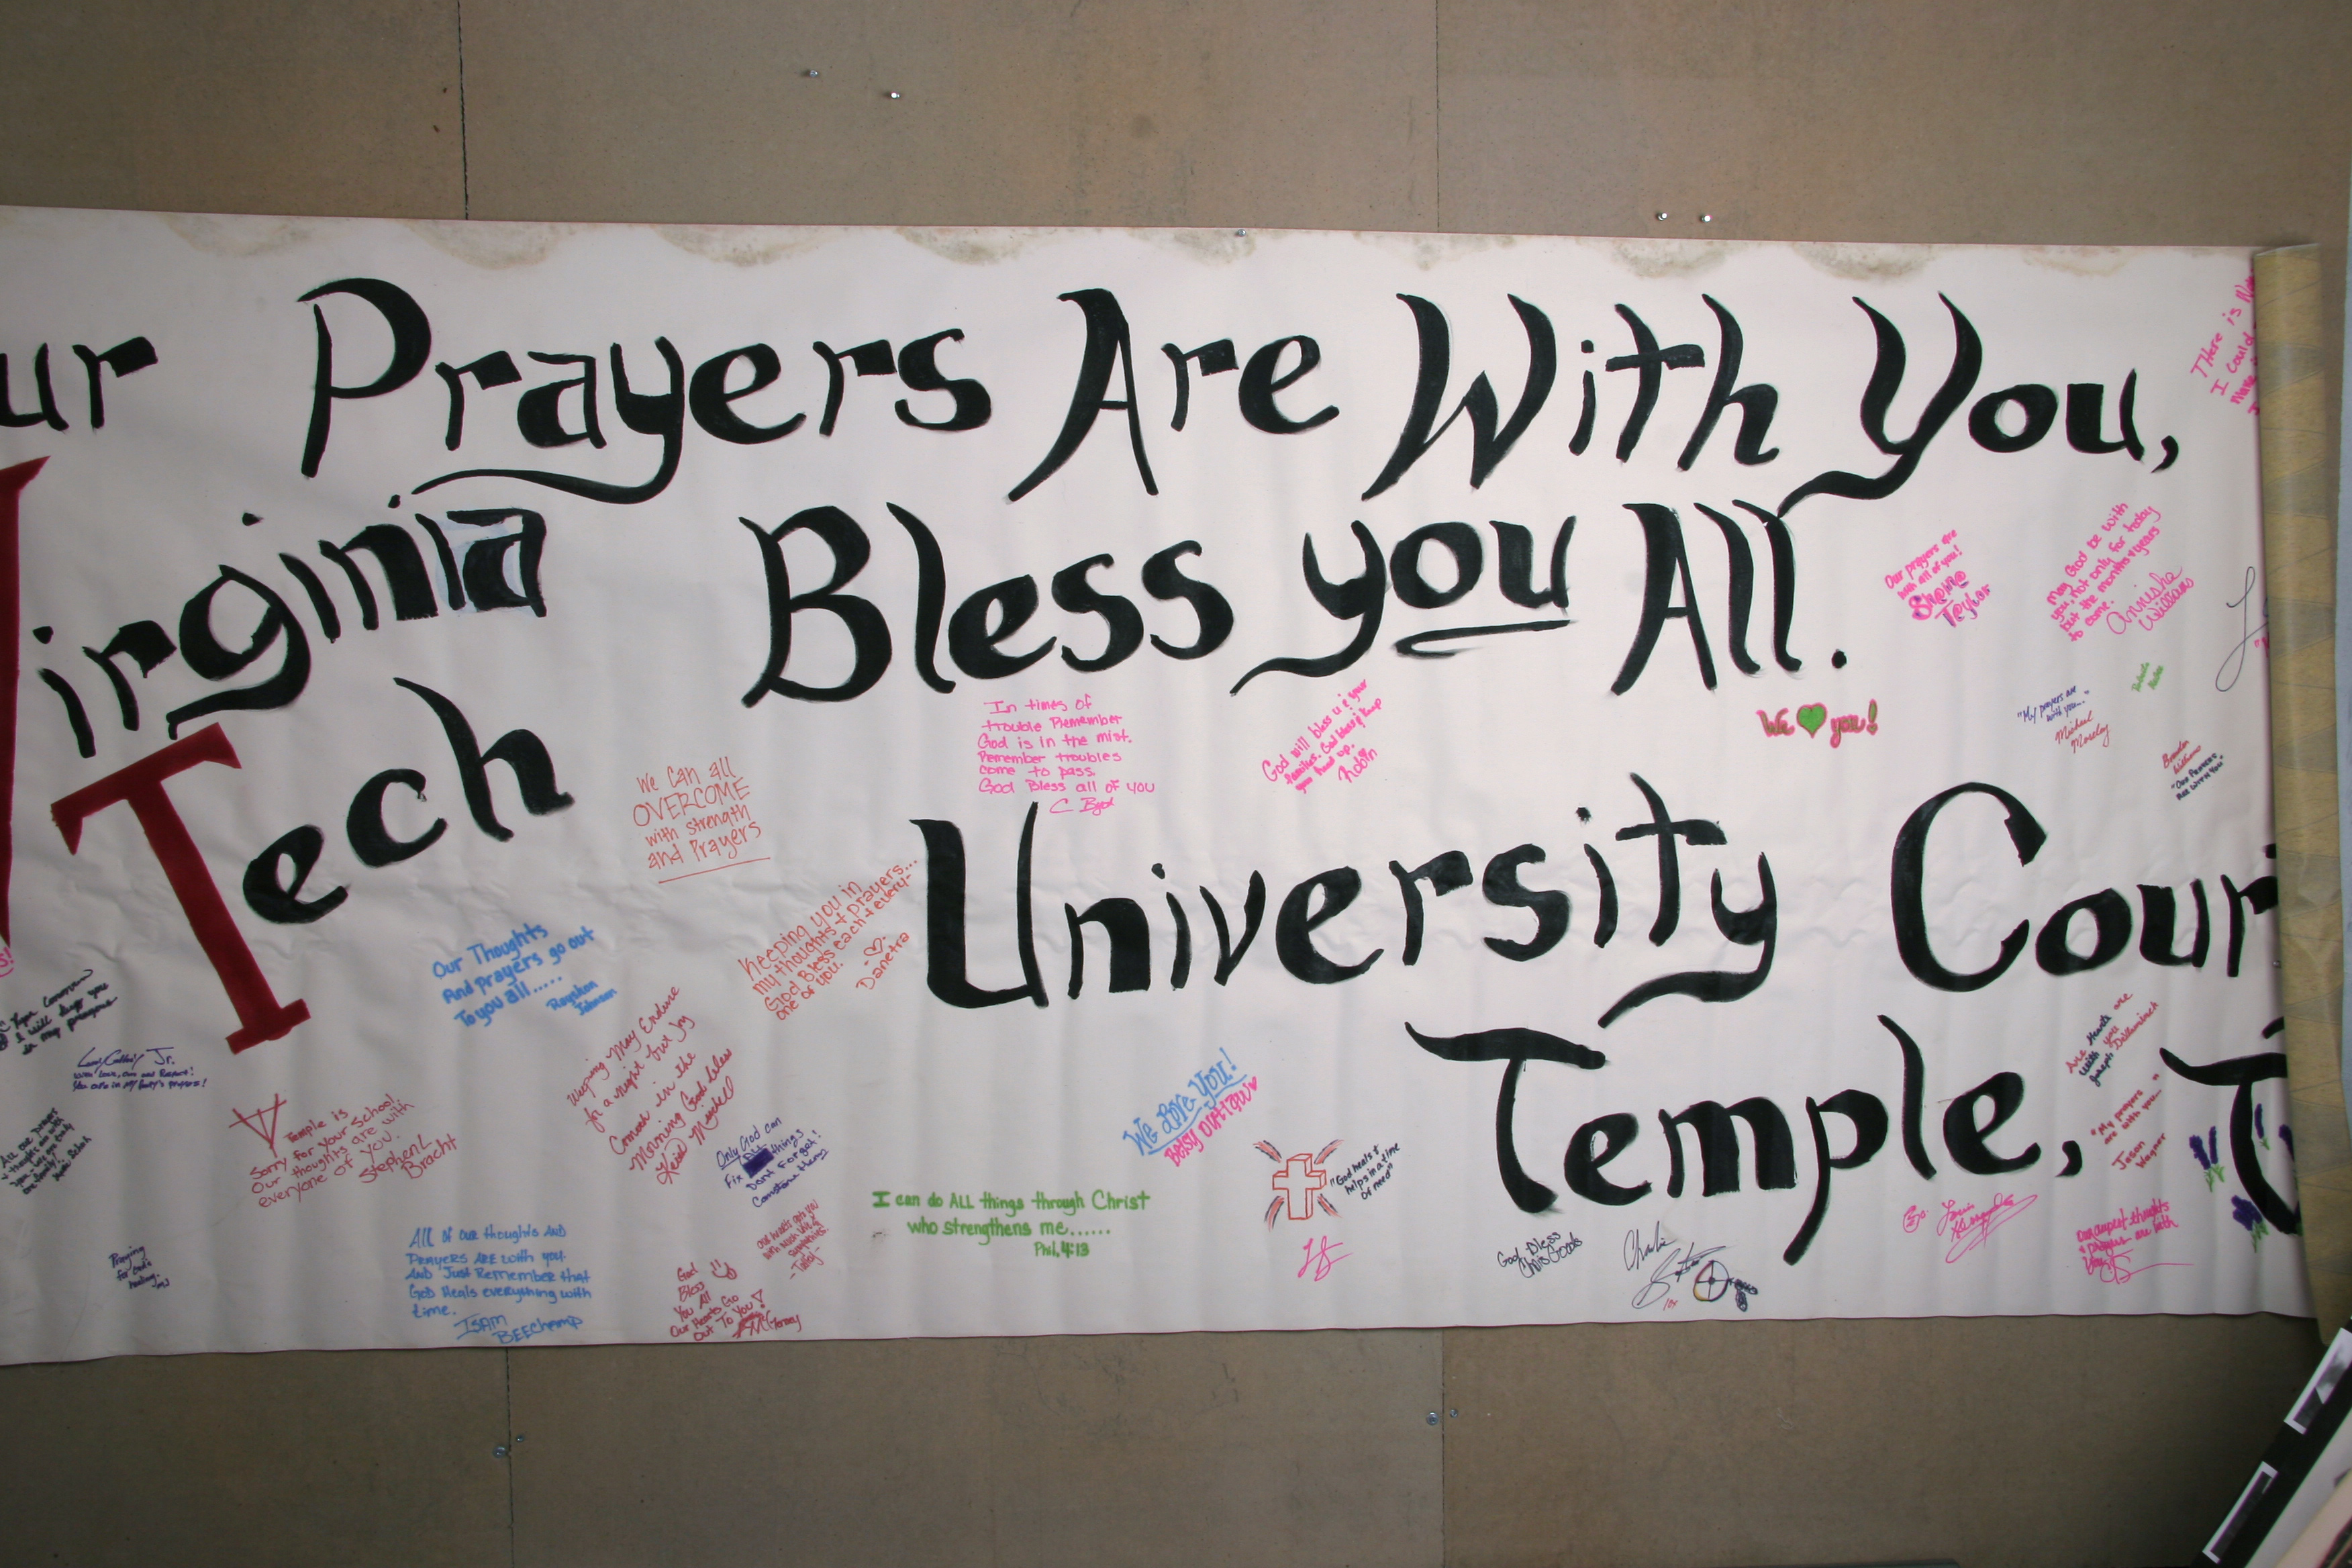 ur Prayers Are With You,
Virginia
Bless you All.
Tech
University Cour
Temple, T
There is
I Could
Our prayers are
with all of you!
Taylor
May God be with
you, not only for today
but the months & years
to come.
Annisha
Williams
"My prayers are
with you..."
Michael
Moreley
Brandon
Williams
"Our Prayers
Are With You"
We you!
In times of
trouble Remember
God is in the mist.
Remember troubles
come to pass.
God Bless all of you
C Byrd
God will bless u & your
families. God bless & keep
you head up.
Robin
We Can all
OVERCOME
with strength
and Prayers
Keeping you in
my thoughts & prayers...
God Bless each & every-
one of you.
Danetra
Our Thoughts
And prayers go out
To you all.....
Rayshon
Johnson
I will keep you
in my prayers
Jr.
You are in my family's prayers!
Temple is
Sorry for Your School.
Our thoughts are with
everyone of you.
Stephen L
Bracht
Weeping May Endure
for a night but joy
Comes in the
Morning God bless
Only God can
Fix things
Dont Forget!
I can do ALL things through Christ
who strengthens me......
Phil. 4:13
We Love You!
"God heals &
helps in a time
of need"
All of our thoughts AND
PRAYERS ARE with you.
AND Just Remember that
GOD Heals everything with
time.
ISAM
BEEChamp
God
Bless
You All
Our Hearts Go
Out To You!
our hearts goes you
with
- Tabby -
Praying
for God's
healing.
God Bless
Chris Goods
Charlie
Are Hearts are
with you
Joseph
"My prayers
are with you..."
Jason
Wagner
Our deepest thoughts
& prayers are with
you